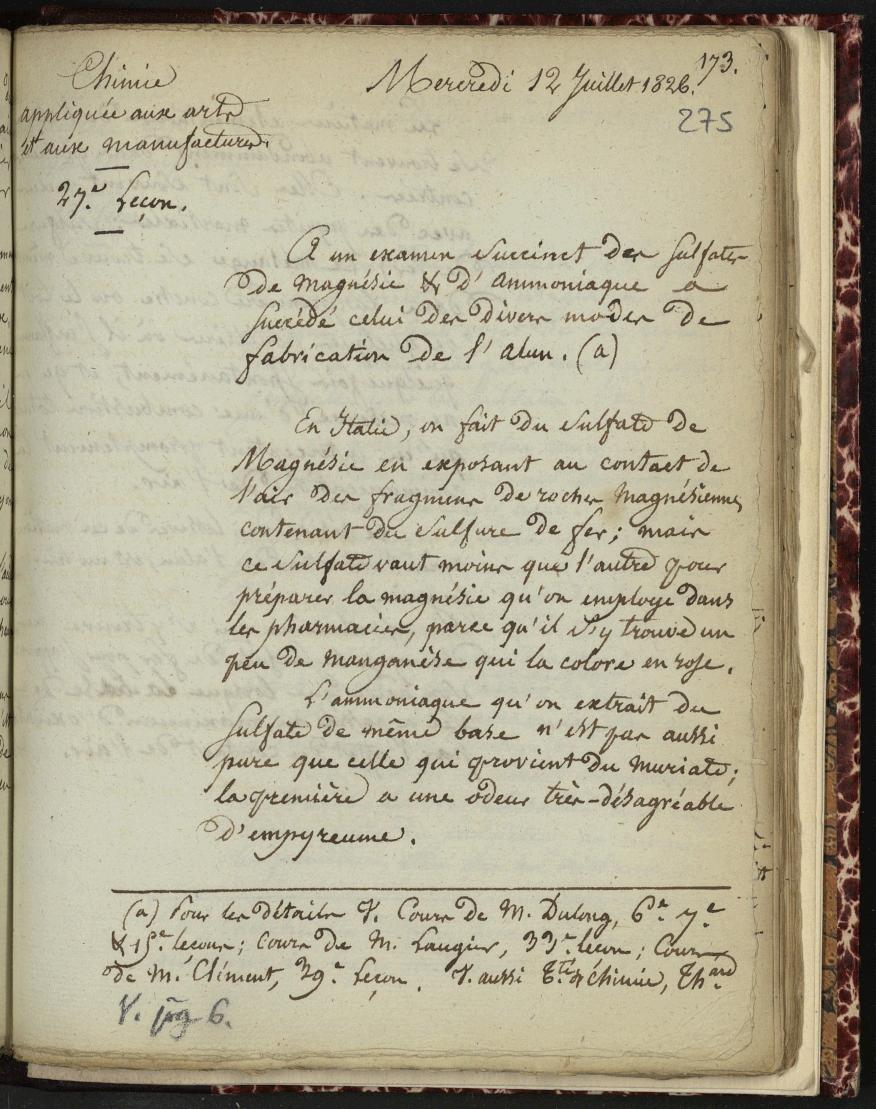 173.
Chimie
appliquée aux arts
et aux manufactures.
Mercredi 12 Juillet 1826.
275
27.e Leçon.
A un examen succinct des sulfates
de magnésie & d'ammoniaque a
succédé celui des divers modes de
fabrication de l'alun. (a)
En Italie, on fait du sulfate de
Magnésie en exposant au contact de
l'air des fragmens de roches magnésiennes
contenant du sulfure de fer; mais
ce sulfate vaut moins que l'autre pour
préparer la magnésie qu'on employe dans
les pharmacies, parce qu'il s'y trouve un
peu de manganèse qui la colore en rose.
L'ammoniaque qu'on extrait du
sulfate de même base n'est pas aussi
pure que celle qui provient du muriate;
la première a une odeur très-désagréable
d'empyreume.
(a) Pour les détails V. Cours de M. Dulong, 6.e 7.e
& 15.e lecons; Cours de M. Laugier, 33.e leçon; Cours
de M. Clément, 39.e Leçon. V. aussi T.té de chimie, Th.ard
V. pag 6.